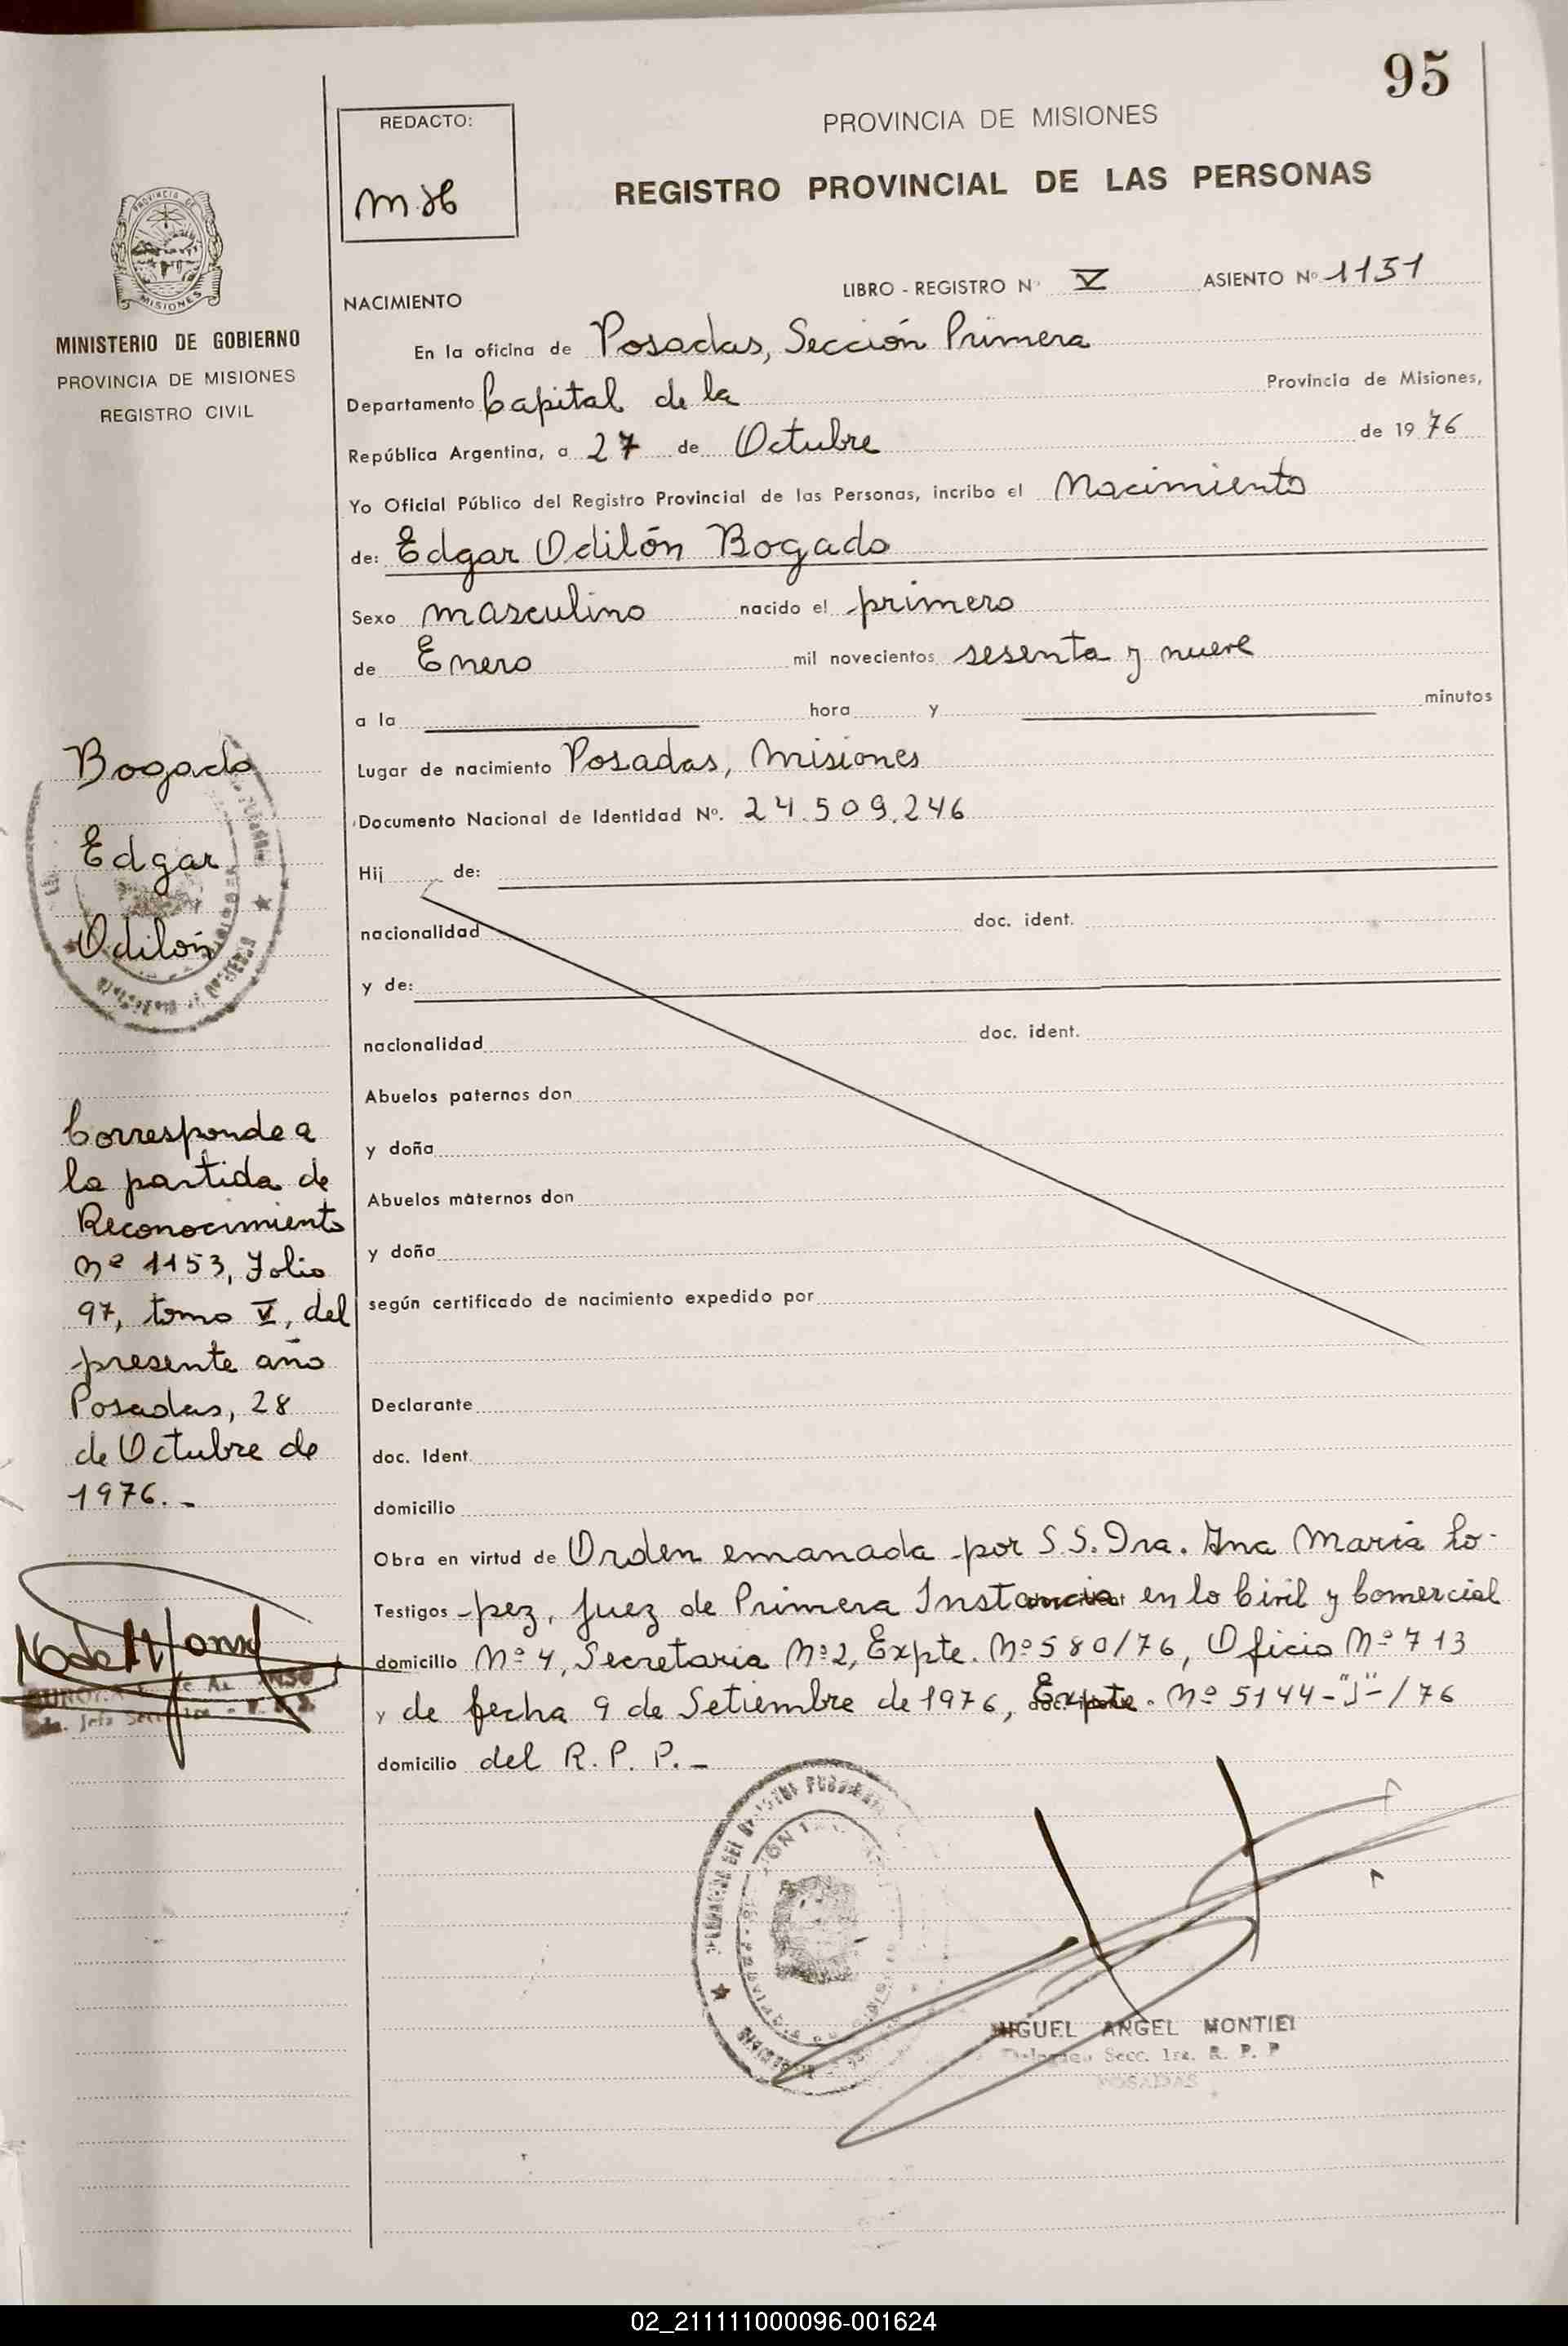 95
REDACTO:
PROVINCIA DE MISIONES
REGISTRO PROVINCIAL DE LAS PERSONAS
MISIONES
MINISTERIO DE GOBIERNO
PROVINCIA DE MISIONES
REGISTRO CIVIL
LIBRO - REGISTRO Nº V ASIENTO Nº 1151
NACIMIENTO
En la oficina de Posadas, Sección Primera
Departamento Capital de la Provincia de Misiones,
República Argentina, a 27 de Octubre de 1976
Yo Oficial Público del Registro Provincial de las Personas, incribo el Nacimiento
de: Edgar Odilón Bogado
Sexo masculino nacido el primero
de Enero mil novecientos sesenta y nueve
a la hora y minutos
Lugar de nacimiento Posadas, Misiones
Documento Nacional de Identidad Nº. 24.509.246
Hij de:
nacionalidad doc. ident.
y de:
nacionalidad doc. ident.
Abuelos paternos don
y doña
Abuelos maternos don
y doña
según certificado de nacimiento expedido por
Declarante
doc. Ident
domicilio
Obra en virtud de Orden emanada por S.S. Dra. Ana María Lo-
Testigos pez, Juez de Primera Instancia en lo Civil y Comercial
domicilio Nº 4, Secretaria Nº 2, Expte. Nº 580/76, Oficio Nº 713
y de fecha 9 de Setiembre de 1976, Expte. Nº 5144-"J"-/76
domicilio del R. P. P. -
Bogado
Edgar
Odilón
Corresponde a
la partida de
Reconocimiento
Nº 1153, Folio
97, tomo V, del
presente año
Posadas, 28
de Octubre de
1976. -
MIGUEL ANGEL MONTIEL
Delegado Secc. 1ra. R. P. P
POSADAS
02_211111000096-001624